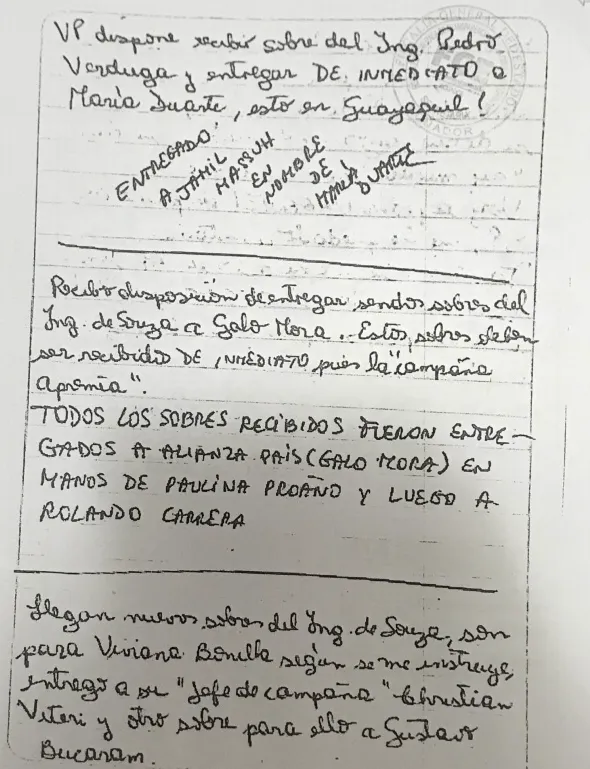 VP dispone recibir sobre del Ing. Pedro
Verduga y entregar DE INMEDIATO a
María Duarte, esto en Guayaquil!
ENTREGADO
A JAMIL
MASSUH
EN
NOMBRE
DE
MARIA
DUARTE
Recibo disposición de entregar sendos sobres del
Ing. de Souza a Galo Mora. Estos sobres deben
ser recibidos DE INMEDIATO pues la "campaña
apremia".
TODOS LOS SOBRES RECIBIDOS FUERON ENTRE-
GADOS A ALIANZA PAIS (GALO MORA) EN
MANOS DE PAULINA PROAÑO Y LUEGO A
ROLANDO CARRERA
Llegan nuevos sobres del Ing. de Souza, son
para Viviana Bonilla según se me instruye,
entrego a su "jefe de campaña" Christian
Viteri y otro sobre para ello a Gustavo
Bucaram.